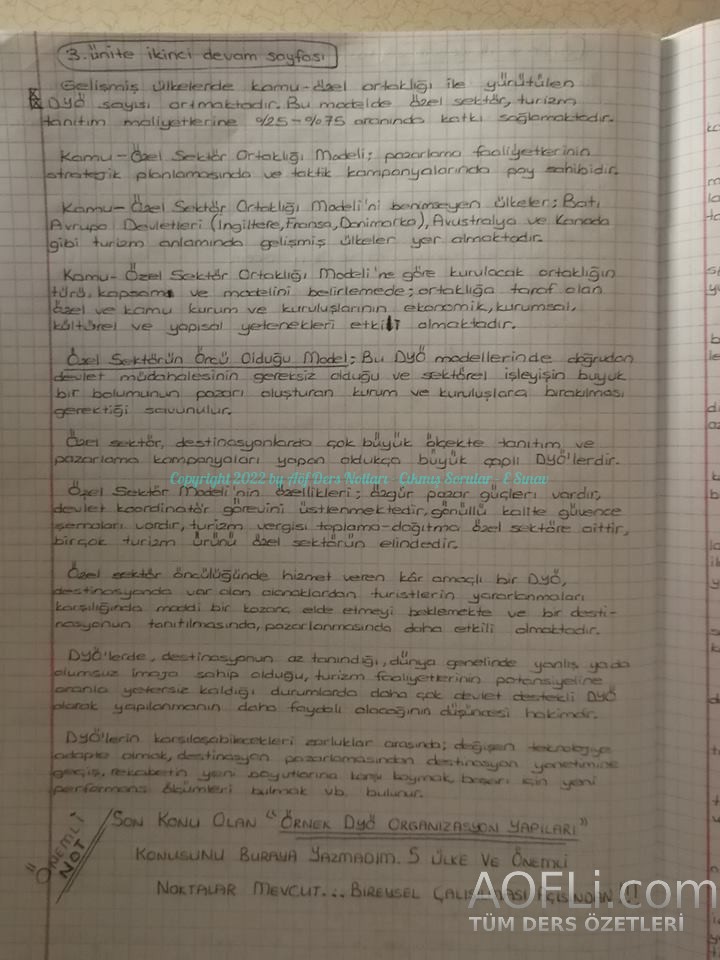 3. ünite ikinci devam sayfası
Gelişmiş ülkelerde kamu-özel ortaklığı ile yürütülen
DYÖ sayısı artmaktadır. Bu modelde özel sektör, turizm
tanıtım maliyetlerine %25-%75 oranında katkı sağlamaktadır.
Kamu-Özel Sektör Ortaklığı Modeli; pazarlama faaliyetlerinin
stratejik planlamasında ve taktik kampanyalarında pay sahibidir.
Kamu-Özel Sektör Ortaklığı Modeli'ni benimseyen ülkeler; Batı
Avrupa Devletleri (İngiltere, Fransa, Danimarka), Avustralya ve Kanada
gibi turizm anlamında gelişmiş ülkeler yer almaktadır.
Kamu-Özel Sektör Ortaklığı Modeli'ne göre kurulacak ortaklığın
türü, kapsamı ve modelini belirlemede; ortaklığa taraf olan
özel ve kamu kurum ve kuruluşlarının ekonomik, kurumsal,
kültürel ve yapısal yetenekleri etkili olmaktadır.
Özel Sektörün Öncü Olduğu Model; Bu DYÖ modellerinde doğrudan
devlet müdahalesinin gereksiz olduğu ve sektörel işleyişin büyük
bir bölümünün pazarı oluşturan kurum ve kuruluşlara bırakılması
gerektiği savunulur.
Özel sektör, destinasyonlarda çok büyük ölçekte tanıtım ve
pazarlama kampanyaları yapan oldukça büyük çaplı DYÖ'lerdir.
Copyright 2022 by Aöf Ders Notları - Çıkmış Sorular - E Sınav
Özel Sektör Modeli'nin özellikleri; özgür pazar güçleri vardır,
devlet koordinatör görevini üstlenmektedir, gönüllü kalite güvence
şemaları vardır, turizm vergisi toplama-dağıtma özel sektöre aittir,
birçok turizm ürünü özel sektörün elindedir.
Özel sektör öncülüğünde hizmet veren kâr amaçlı bir DYÖ,
destinasyonda var olan olanaklardan turistlerin yararlanmaları
karşılığında maddi bir kazanç elde etmeyi beklemekte ve bir desti-
nasyonun tanıtılmasında, pazarlanmasında daha etkili olmaktadır.
DYÖ'lerde, destinasyonun az tanındığı, dünya genelinde yanlış yada
olumsuz imaja sahip olduğu, turizm faaliyetlerinin potansiyeline
oranla yetersiz kaldığı durumlarda daha çok devlet destekli DYÖ
olarak yapılanmanın daha faydalı olacağının düşüncesi hakimdir.
DYÖ'lerin karşılaşabilecekleri zorluklar arasında; değişen teknolojiye
adapte olmak, destinasyon pazarlamasından destinasyon yönetimine
geçiş, rekabetin yeni boyutlarına karşı koymak, başarı için yeni
performans ölçümleri bulmak vb. bulunur.
"ÖNEMLİ NOT
SON KONU OLAN "ÖRNEK DYÖ ORGANİZASYON YAPILARI"
KONUSUNU BURAYA YAZMADIM. 5 ÜLKE VE ÖNEMLİ
NOKTALAR MEVCUT... BİREYSEL ÇALIŞILMASI AÇISINDAN!!!
AOFLi.com
TÜM DERS ÖZETLERİ